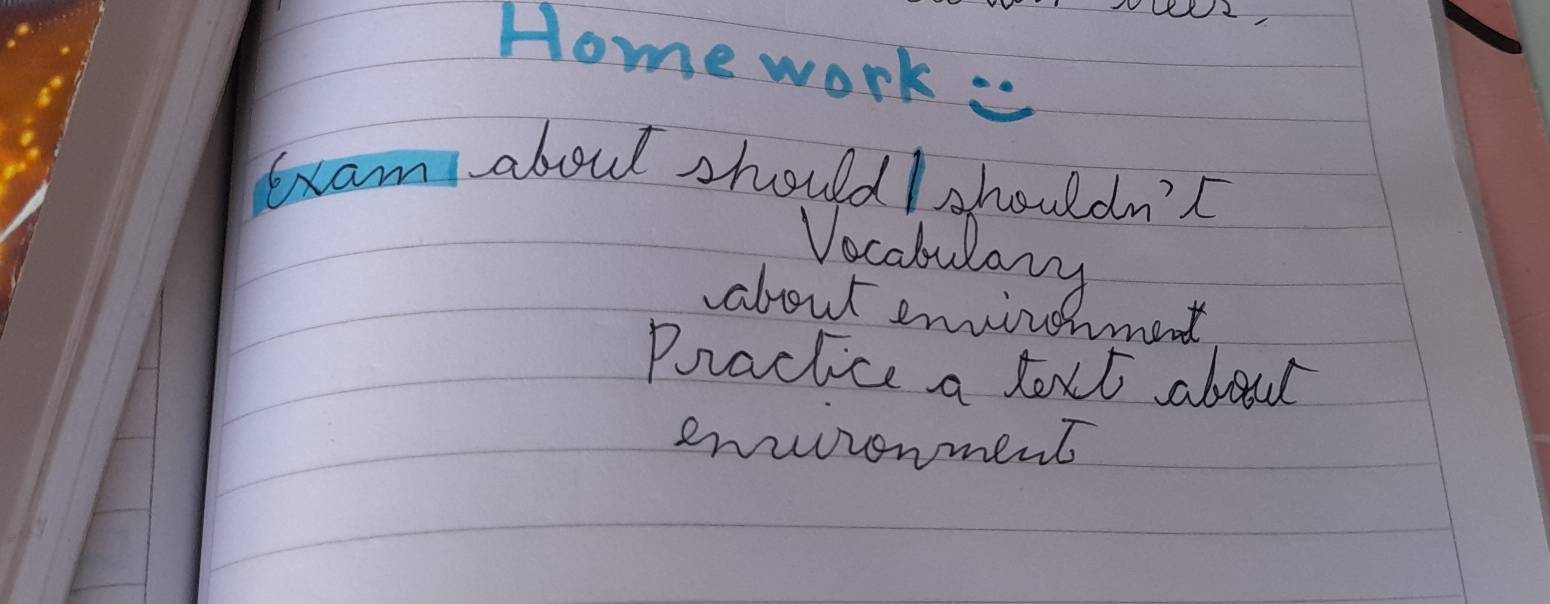 Homework
Exam about should/shouldn't
Vocabulary
about environment
Practice a text about
environment